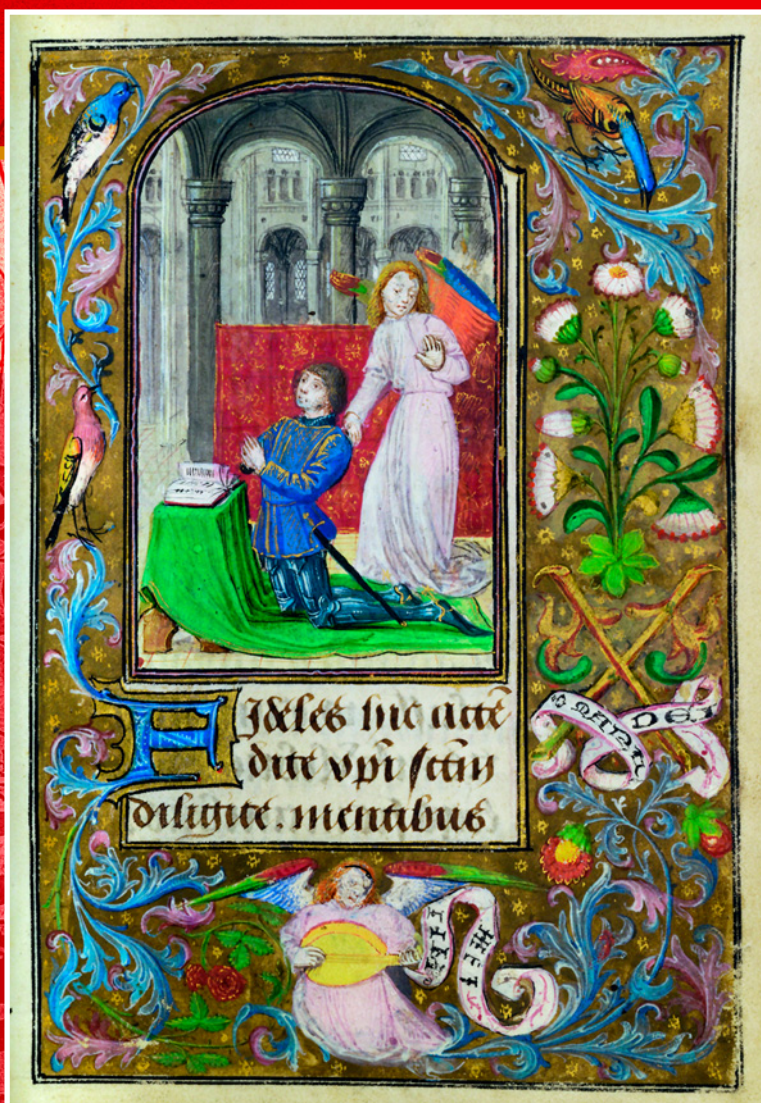 Fideles hic attē
dite xp̄i sctm̄
diligite. mentibus
DEI